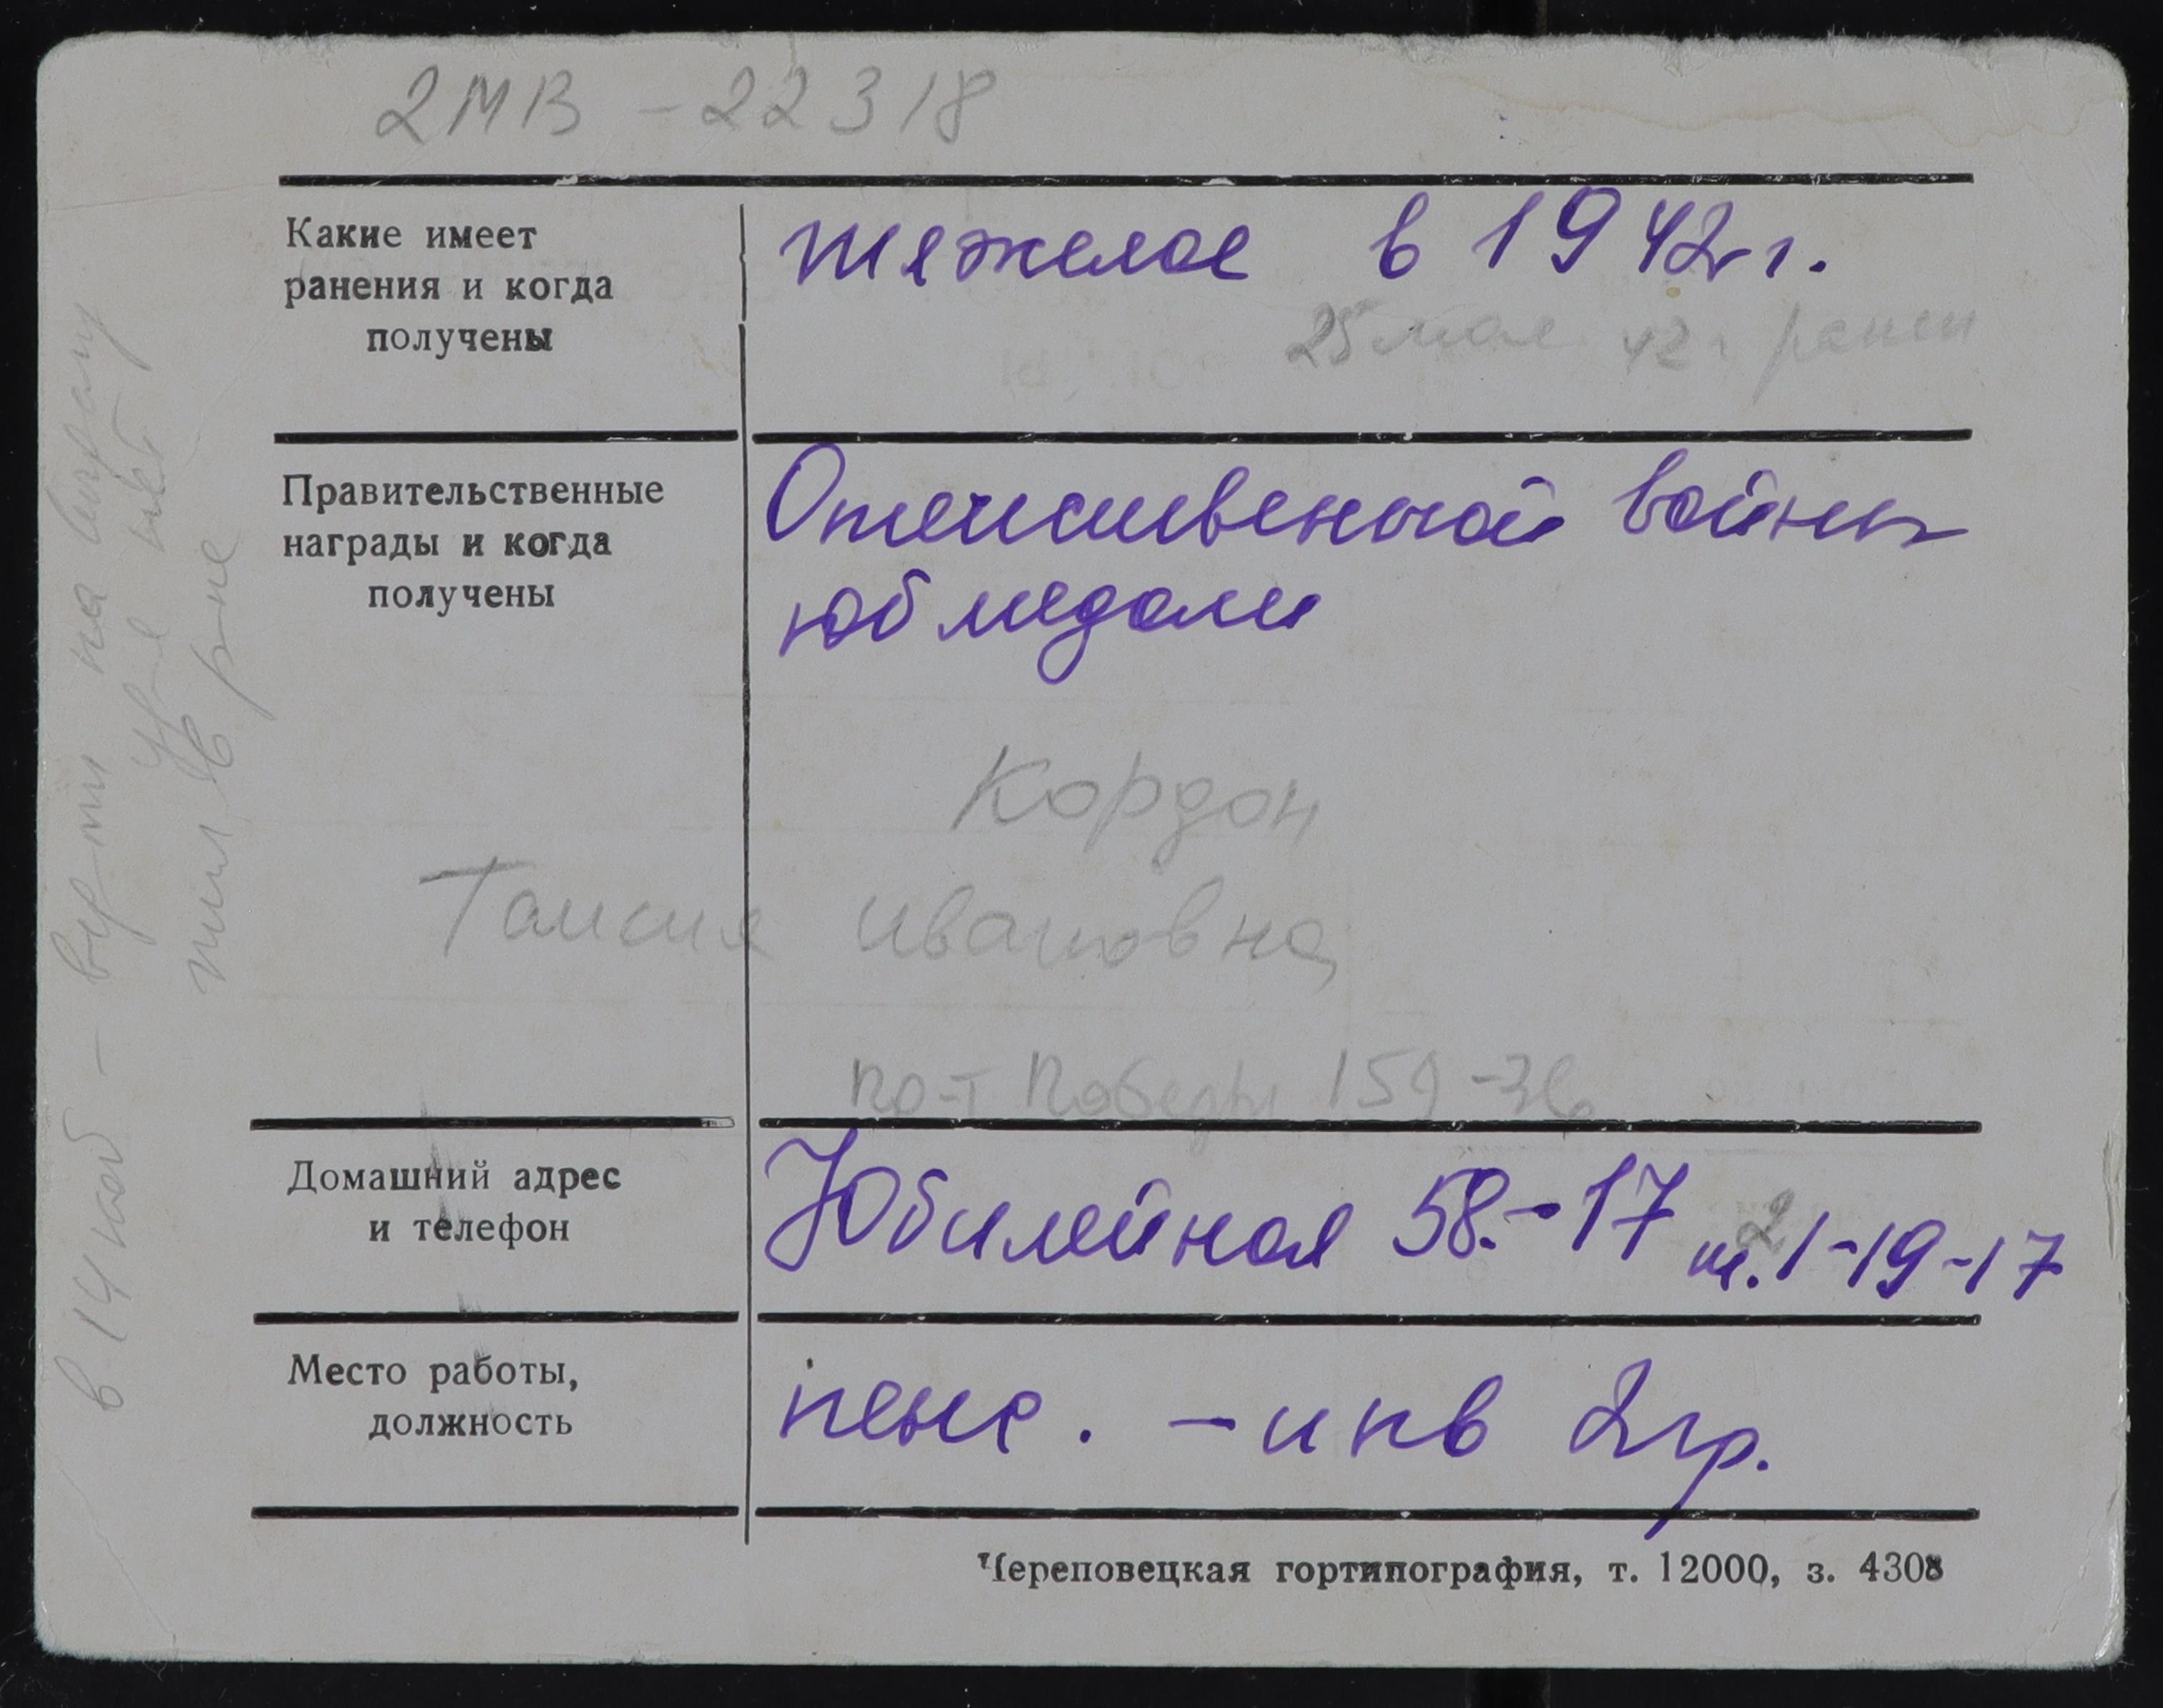 2МВ - 22318
Какие имеет
ранения и когда
получены
тяжелое в 1942 г.
25 мая 42 г ранен
Правительственные
награды и когда
получены
Отечественной войны
юб медали
Кордон
Таисия Ивановна
пр-т Победы 159-36
Домашний адрес
и телефон
Юбилейная 58.-17 т. 1-19-17
2
Место работы,
должность
пенс. - инв 2 гр.
Череповецкая гортипография, т. 12000, з. 4308
в 14 каб - на
нет
жил в р-не